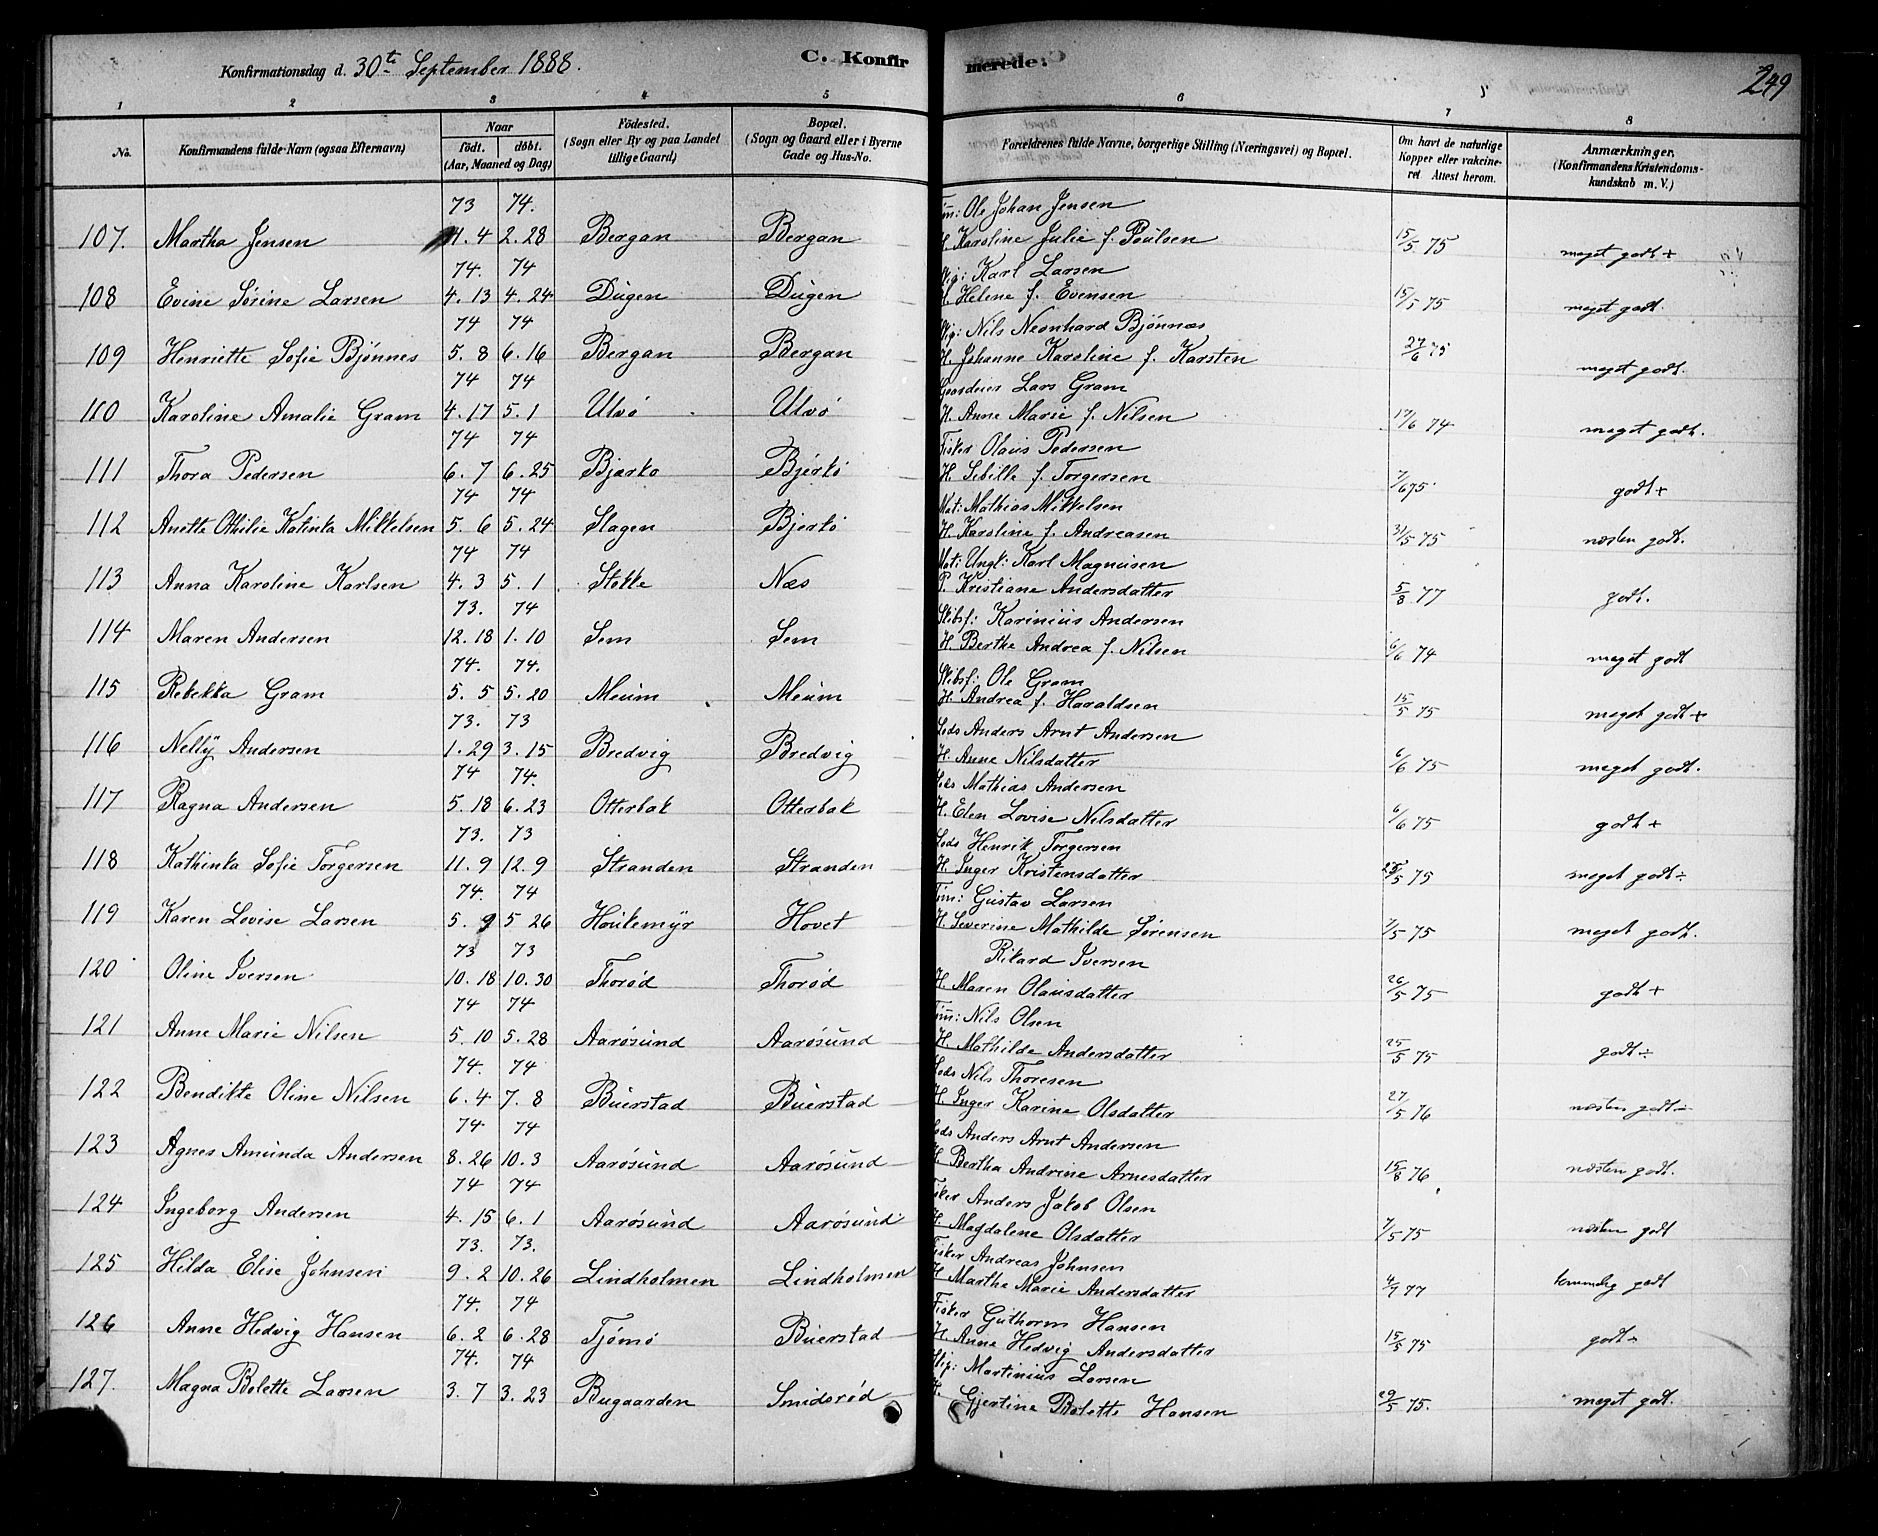 Konfirmationsdag d. 30te September 1888. C. Konfir merede. 249
1 2 3 4 5 6 7 8
No. Konfirmandens fulde Navn (ogsaa Efternavn) Naar født. døbt. (Aar, Maaned og Dag) Fødested. (Sogn eller By og paa Landet tillige Gaard) Bopæl. (Sogn og Gaard eller i Byerne Gade og Hus-No. Forældrenes fulde Navne, borgerlige Stilling (Næringsvei) og Bopæl. Om havt de naturlige Kopper eller vakcineret Attest herom. Anmærkninger. (Konfirmandens Kristendomskundskab m. V.)
73 74. Ole Johan Jensen
107. Martha Jensen 11. 4 2. 28 Bergan Bergan H. Karoline Julie f. Poulsen 15/5 75 meget godt +
74. 74 Karl Larsen
108 Evine Sørine Larsen 4. 13 4. 24 Dugen Dugen H. Helene f. Evensen 15/5 75 meget godt.
74 74 Nils Neonhard Bjønnæs
109 Henriette Sofie Bjønnes 5. 8 6. 16 Bergan Bergan H. Johanne Karoline f. Karsten 27/6 75 meget godt.
74 74 Gaardeier Lars Gram
110 Karoline Amalie Gram 4. 17 5. 1 Ulvø Ulvø H. Anne Marie f. Nilsen 17/6 74 meget godt.
74 74 Fisker Olaus Pedersen
111 Thora Pedersen 6. 7 6. 25 Bjærko Bjerkø H. Sibille f. Torgersen 7/6 75 godt +
74 74 Mat: Mathias Mikkelsen
112 Anette Othilie Katinka Mikkelsen 5. 6 5. 24 Slagen Bjerkø H. Karoline f. Andreasen 31/5 75 næsten godt.
74 74 Mat: Ungk: Karl Magnusen
113 Anna Karoline Karlsen 4. 3 5. 1. Stokke Næs P. Kristiane Andersdatter 5/8 77 godt.
73. 74 Skibsf: Karinius Andersen
114 Maren Andersen 12. 18 1. 10 Sem Sem H. Berthe Andrea f. Nilsen 6/6 74 meget godt
74. 74. Skibsf: Ole Gram
115 Rebekka Gram 5. 5 5. 20 Meum Meum H. Andrea f. Haraldsen 15/5 75 meget godt +
73. 73 Anders Arnt Andersen
116 Nelly Andersen 1. 29 3. 15 Bredvig Bredvig H. Anne Nilsdatter 6/6 75 meget godt.
74 74. Mathias Andersen
117 Ragna Andersen 5. 18 6. 23 Otterbæk Otterbæk H. Elen Lovise Nilsdatter 6/6 75 godt +
73. 73 Henrik Torgersen
118 Kathinka Sofie Torgersen 11. 9 12. 9 Stranden Stranden H. Inger Kristensdatter /5 75 meget godt ÷
74. 74 Tøm: Gustav Larsen
119 Karen Lovise Larsen 5. 9 5 26 Houkemyr Hovet H. Severine Mathilde Sørensen 7/5 75 meget godt.
73 73 Rikard Iversen
120 Oline Iversen 10. 18 10. 30 Thorød Thorød H. Maren Olausdatter 26/5 75 godt +
74 74 Tøm: Nils Olsen
121 Anne Marie Nilsen 5. 10 5. 28 Aarøsund Aarøsund H. Mathilde Andersdatter 25/5 75 godt ÷
74. 74 Nils Thoresen
122 Benditte Oline Nilsen 6. 4 7. 8 Buerstad Buerstad H. Inger Karine Olsdatter 27/5 76 næsten godt ÷
74 74 Anders Arnt Andersen
123 Agnes Amunda Andersen 8. 26 10. 3 Aarøsund Aarøsund H. Bertha Andrine Arnesdatter 15/8 76 næsten godt.
74 74 Fisker Anders Jakob Olsen
124 Ingeborg Andersen 4. 15 6. 1 Aarøsund Aarøsund H. Magdalene Olsdatter 7/5 75 næsten godt
73. 73. Fisker Andreas Johnsen
125 Hilda Elise Johnsen 9. 2 10. 26 Lindholmen Lindholmen H. Marthe Marie Andersdatter 4/7 77 temmelig godt
74. 74 Fisker Guthorm Hansen
126 Anne Hedvig Hansen 6. 2 6. 28 Tjømø Buerstad H. Anne Hedvig Andersdatter 15/5 75 godt
74. 74 Martinius Larsen
127. Magna Bolette Larsen 3. 7 3. 23 Bugaarden Smidsrød H. Gjertine Bolette Hansen 29/5 75. meget godt.